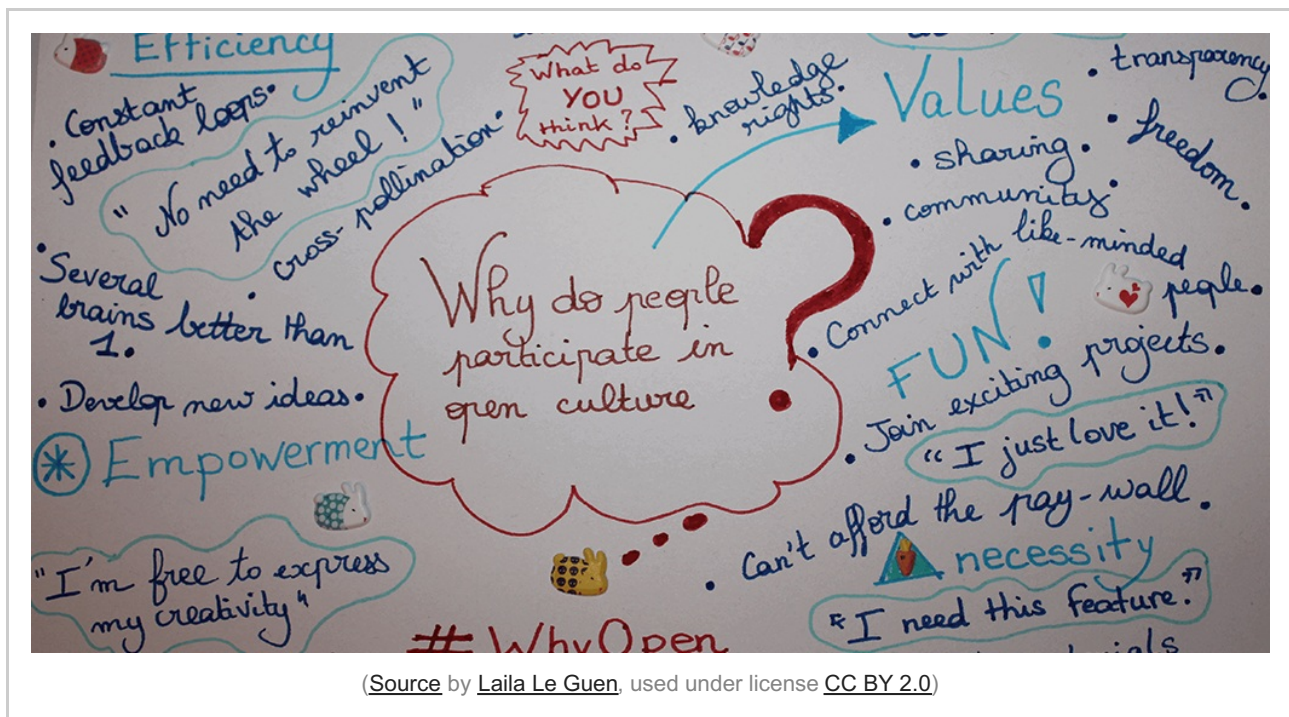 Efficiency
• Constant
feedback loops•
"No need to reinvent
the wheel!"
• cross-pollination•
• Several
brains better than
1.
• Develop new ideas•
Empowerment
"I'm free to express
my creativity"
What do
YOU
think?
Why do people
participate in
open culture
?
#WhyOpen
• knowledge
rights•
Values
• transparency•
• freedom•
• sharing•
• community•
• Connect with like-minded
people•
FUN!
• Join exciting projects•
"I just love it!"
• Can't afford the pay-wall•
necessity
"I need this feature."
(Source by Laila Le Guen, used under license CC BY 2.0)